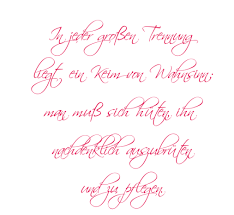 In jeder großen Trennung
liegt ein Keim von Wahnsinn;
man muß sich hüten, ihn
nachdenklich auszubrüten
und zu pflegen.